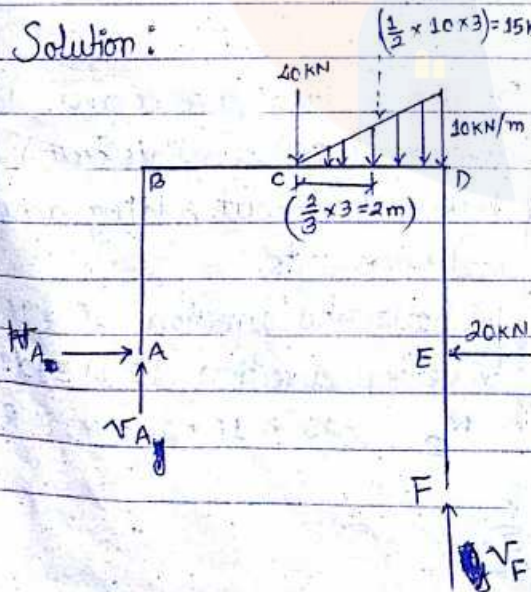 Solution :
(1/2 × 10 × 3) = 15K
40KN
10KN/m
B C D
(2/3 × 3 = 2m)
H_A A E 20KN
V_A
F
V_F